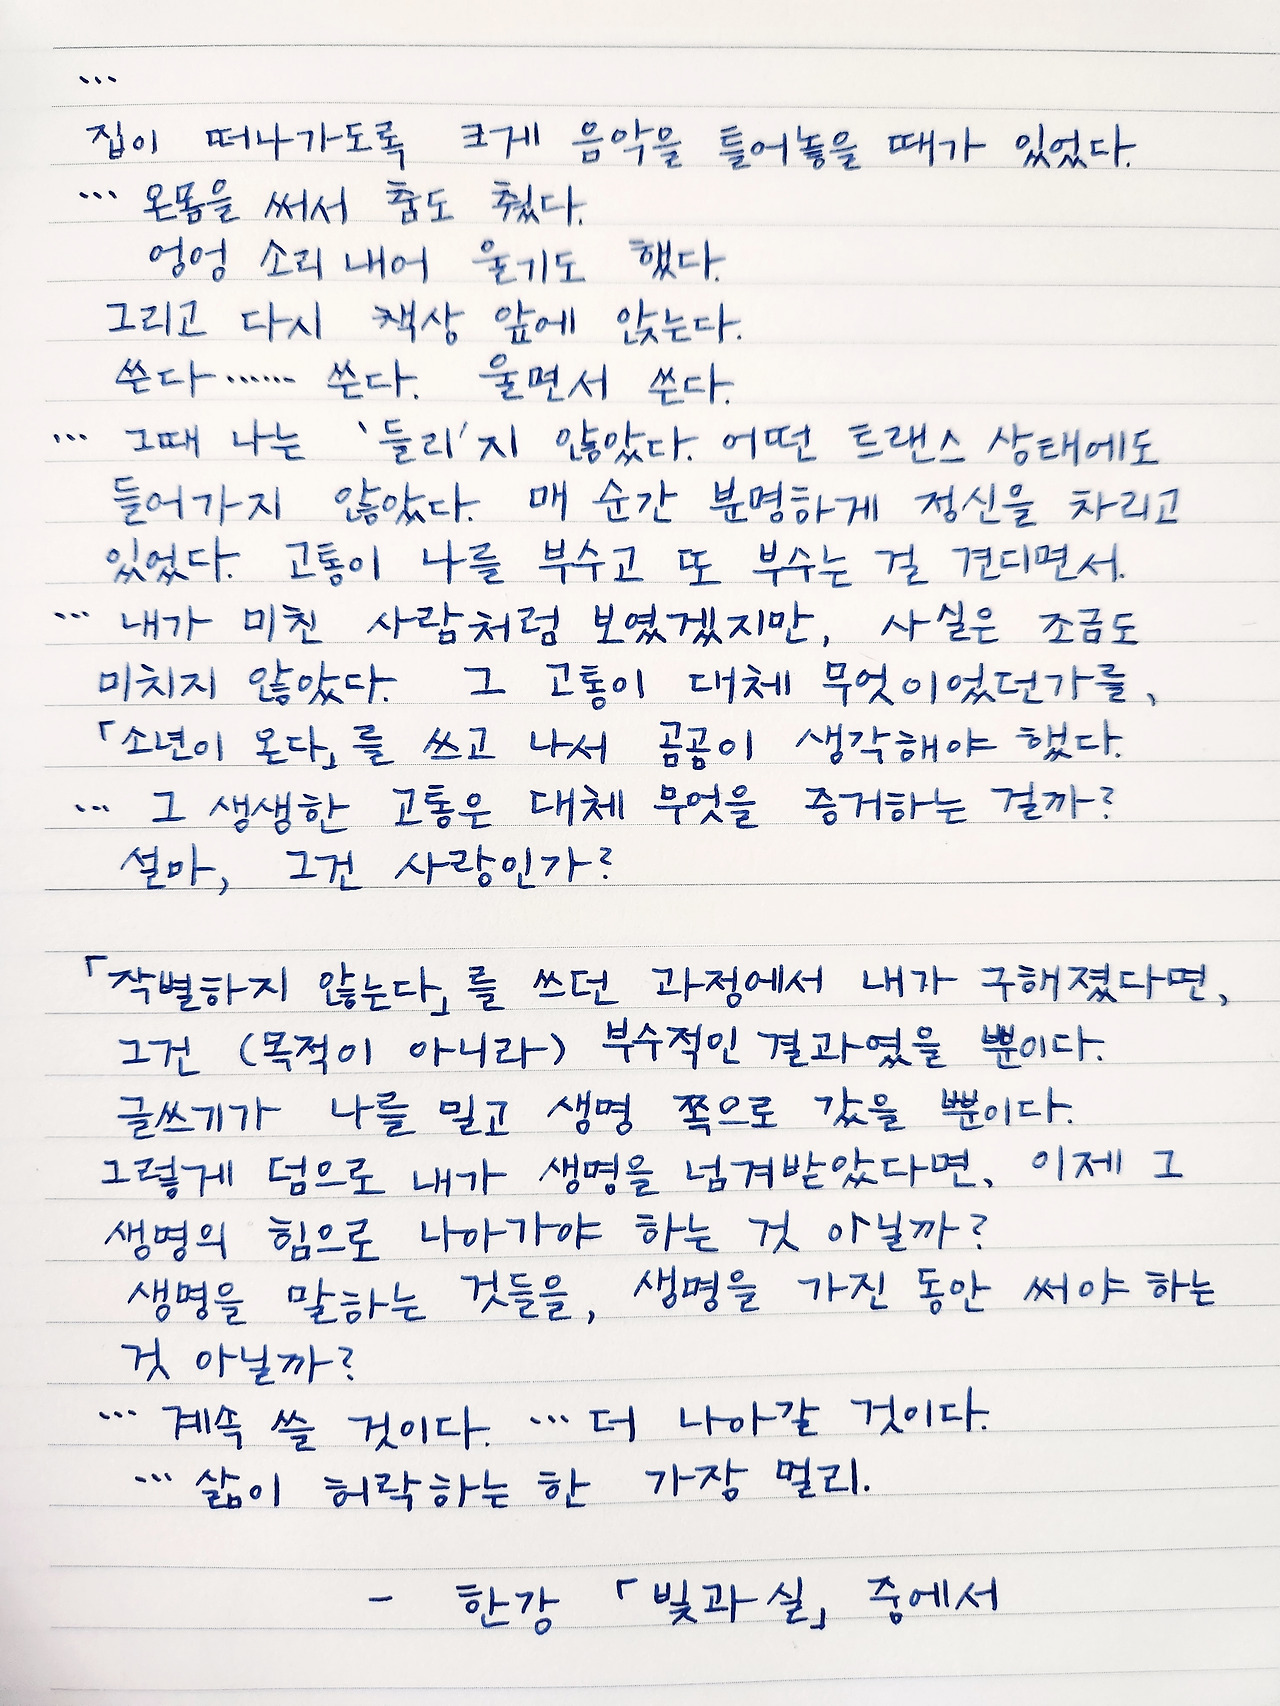 ...
집이 떠나가도록 크게 음악을 틀어놓을 때가 있었다.
... 온몸을 써서 춤도 췄다.
엉엉 소리 내어 울기도 했다.
그리고 다시 책상 앞에 앉는다.
쓴다...... 쓴다. 울면서 쓴다.
... 그때 나는 '들리'지 않았다. 어떤 트랜스 상태에도
들어가지 않았다. 매 순간 분명하게 정신을 차리고
있었다. 고통이 나를 부수고 또 부수는 걸 견디면서.
... 내가 미친 사람처럼 보였겠지만, 사실은 조금도
미치지 않았다. 그 고통이 대체 무엇이었던가를,
「소년이 온다」를 쓰고 나서 곰곰이 생각해야 했다.
... 그 생생한 고통은 대체 무엇을 증거하는 걸까?
설마, 그건 사랑인가?
「작별하지 않는다」를 쓰던 과정에서 내가 구해졌다면,
그건 (목적이 아니라) 부수적인 결과였을 뿐이다.
글쓰기가 나를 밀고 생명 쪽으로 갔을 뿐이다.
그렇게 덤으로 내가 생명을 넘겨받았다면, 이제 그
생명의 힘으로 나아가야 하는 것 아닐까?
생명을 말하는 것들을, 생명을 가진 동안 써야 하는
것 아닐까?
... 계속 쓸 것이다. ... 더 나아갈 것이다.
... 삶이 허락하는 한 가장 멀리.
- 한강 「빛과 실」 중에서